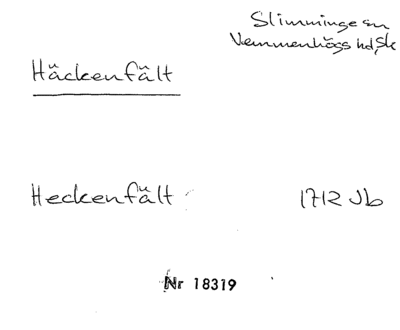 Slimminge sn
Vemmenhögs hd, Sk
Häckenfält
Heckenfält 1712 Jb
Nr 18319